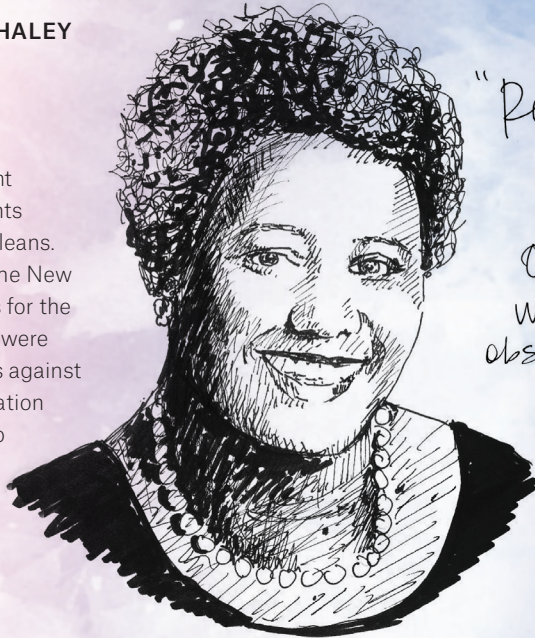 HALEY
nt
nts
leans.
ne New
s for the
were
s against
ation
o
"
obs